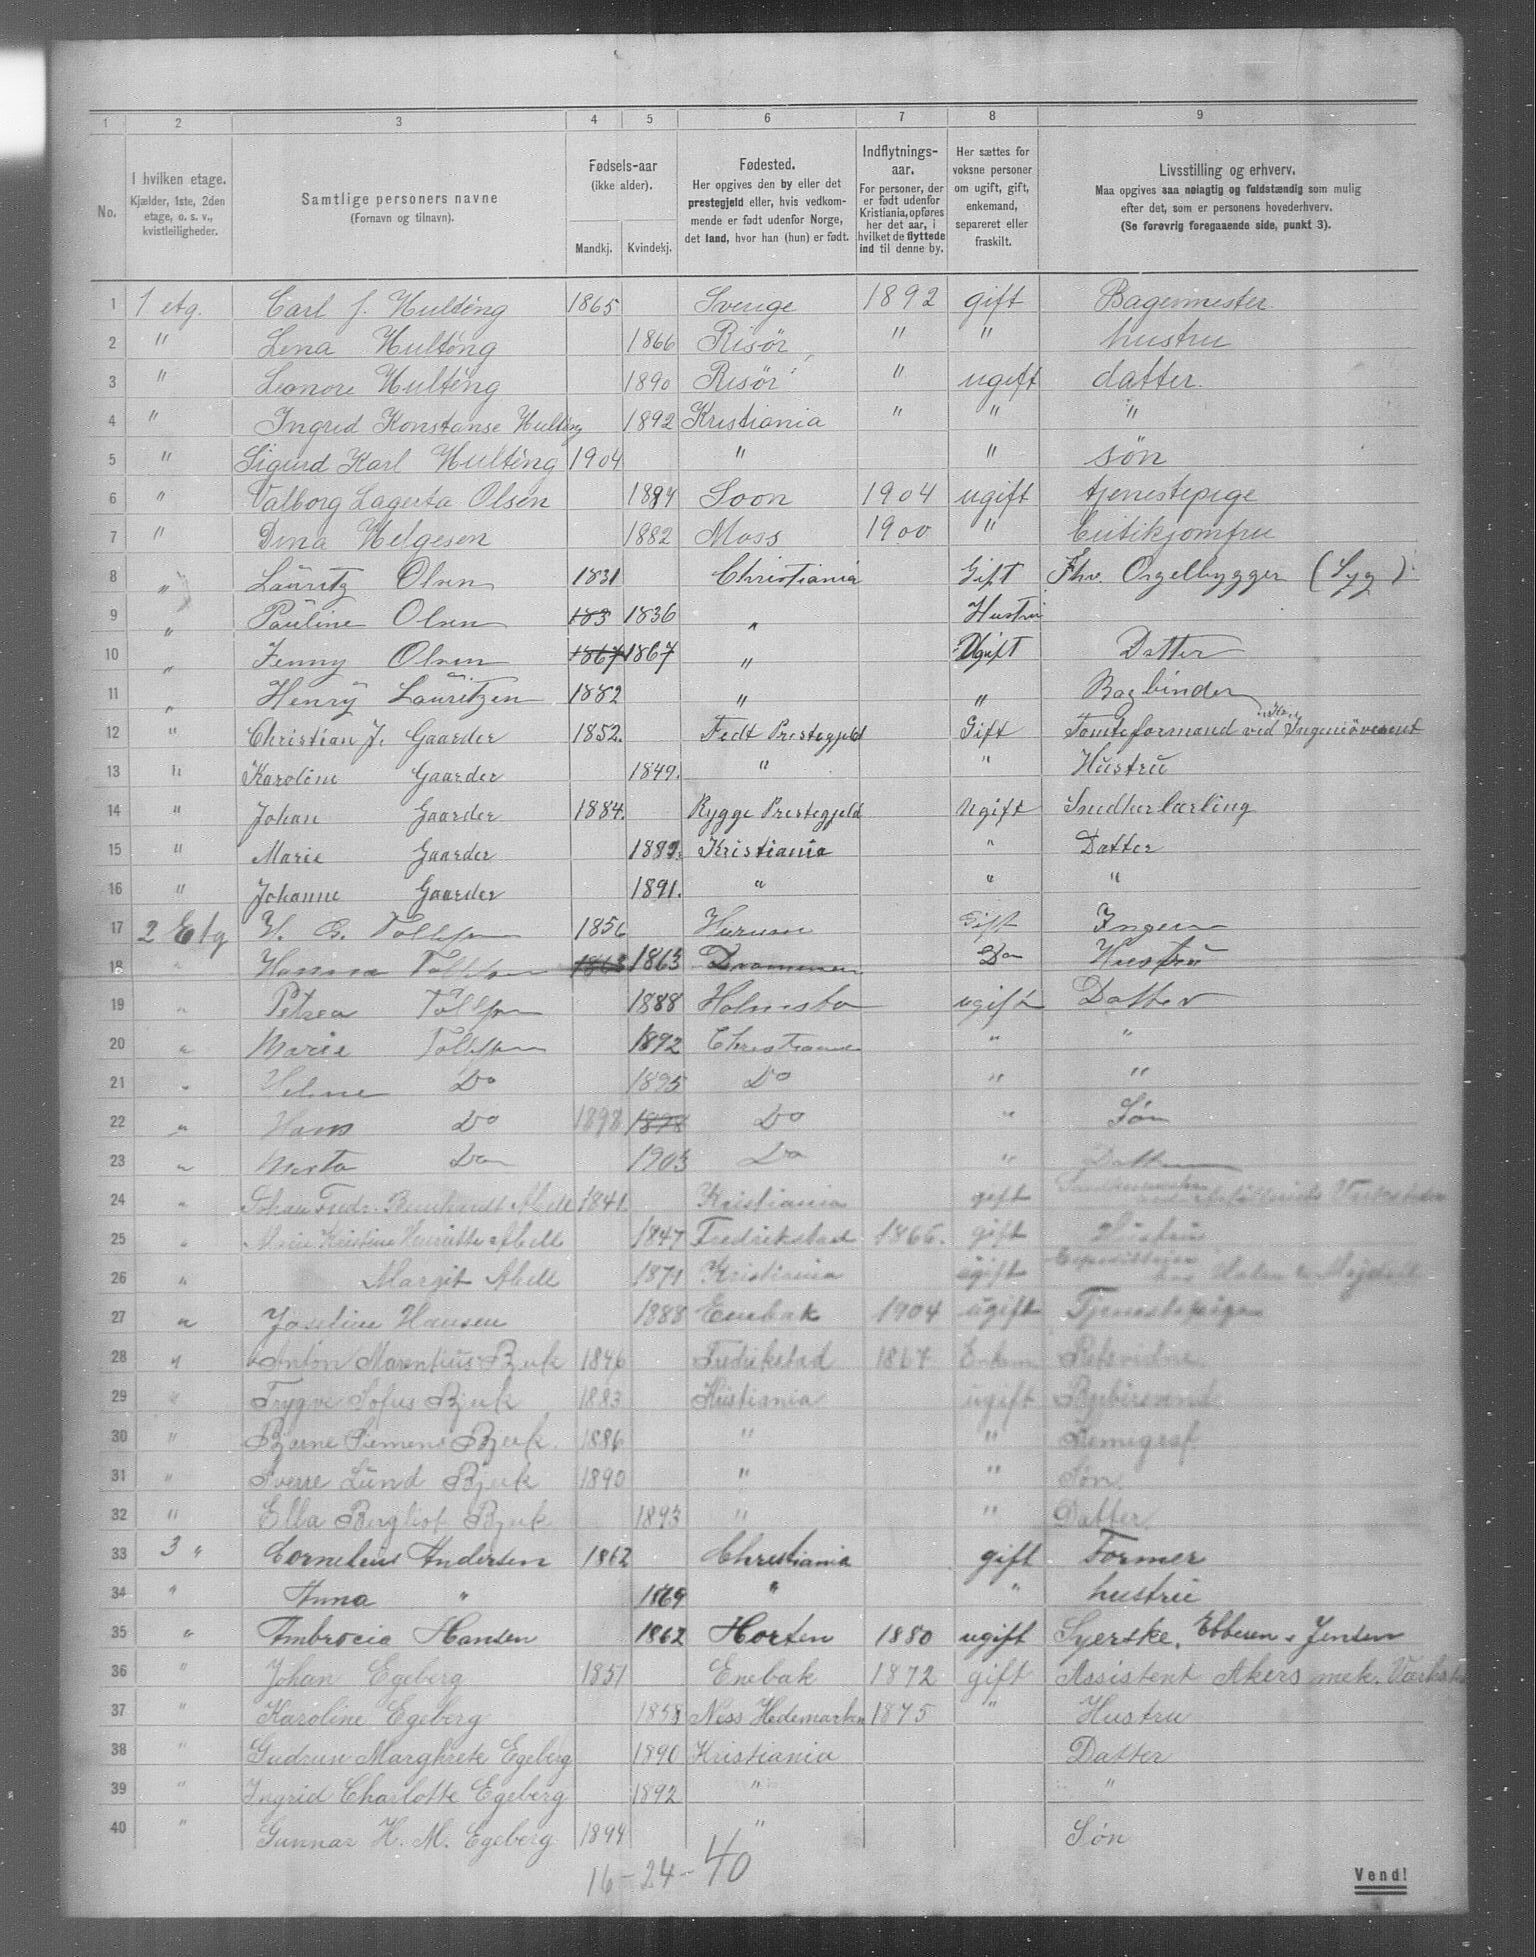 1 2 3 4 5 6 7 8 9
No.
I hvilken etage.
Kjælder, 1ste, 2den
etage, o. s. v.,
kvistleiligheder.
Samtlige personers navne
(Fornavn og tilnavn).
Fødsels-aar
(ikke alder).
Mandkj. Kvindekj.
Fødested.
Her opgives den by eller det
prestegjeld eller, hvis vedkom-
mende er født udenfor Norge,
det land, hvor han (hun) er født.
Indflytnings-
aar.
For personer, der
er født udenfor
Kristiania, opføres
her det aar, i
hvilket de flyttede
ind til denne by.
Her sættes for
voksne personer
om ugift, gift,
enkemand,
separeret eller
fraskilt.
Livsstilling og erhverv.
Maa opgives saa nøiagtig og fuldstændig som mulig
efter det, som er personens hovederhverv.
(Se forøvrig foregaaende side, punkt 3).
1 1 etg. Carl J. Hulting 1865 Sverige 1892 gift Bagermester
2 " Lena Hulting 1866 Risör " " hustru
3 " Leonore Hulting 1890 Risör " ugift datter
4 " Ingrid Konstanse Hulting 1892 Kristiania " " "
5 " Sigurd Karl Hulting 1904 " " søn
6 " Valborg Lagerta Olsen 1884 Soon 1904 ugift tjenestepige
7 " Dina Helgesen 1882 Moss 1900 " Butikjomfru
8 " Lauritz Olsen 1831 Christiania Gift Fhv. Orgelbygger (Syg)
9 " Pauline Olsen 183 1836 " Hustru
10 " Jenny Olsen 1867 1867 " Ugift Datter
11 " Henry Lauritzen 1882 " " Bogbinder
12 " Christian J. Gaarder 1852. Fedt Prestegjeld Gift Tomteformand ved Ingeniövesent
13 " Karoline Gaarder 1849. " " Hustru
14 " Johan Gaarder 1884. Rygge Prestegjeld Ugift Snedkerlærling
15 " Marie Gaarder 1889. Kristiania " Datter
16 " Johanne Gaarder 1891. " " "
17 2 Etg H. G. Tollefsen 1856 Hurum Gift
18 " Hanna Tollefsen 1863 1863 Drammen Do Hustru
19 " Petrea Tollefsen 1888 Holmsbo ugift Datter
20 " Marie Tollefsen 1892 Christiania " "
21 " Do 1895 Do " "
22 " Hans Do 1898 1898 Do " Søn
23 " Do 1903 Do " Datter
24 " Johan Fredr. Bernhardt Abell 1841. Kristiania gift
25 " Marie Kristine Henriette Abell 1847 Fredrikstad 1866. gift Hustru
26 " Margit Abell 1871 Kristiania ugift
27 " Josefine Hansen 1888 Enebak 1904 ugift Tjenestepige
28 " Anton Marentius Bjerk 1846 Fredrikstad 1867 Enkem. Retsvidne
29 " Trygve Sofus Bjerk 1883 Kristiania ugift
30 " Bjarne Siemens Bjerk. 1886 " " Kemigraf
31 " Sverre Lund Bjerk 1890 " " Søn
32 " Ella Bergliot Bjerk 1893 " " Datter
33 3 " Cornelius Andersen 1862 Christiania gift Former
34 " Anna " 1869 " " hustru
35 " Ambrosia Hansen 1862 Horten 1880 ugift Syerske, Ebbesen & Jensen
36 " Johan Egeberg 1851 Enebak 1872 gift Assistent Akers mek. Værksted
37 " Karoline Egeberg 1858 Næss Hedemarken 1875 " Hustru
38 " Gudrun Marghrete Egeberg 1890 Kristiania Datter
39 " Ingrid Charlotte Egeberg 1892 " "
40 " Gunnar H. M. Egeberg 1894 " Søn
16-24-40
Vend!